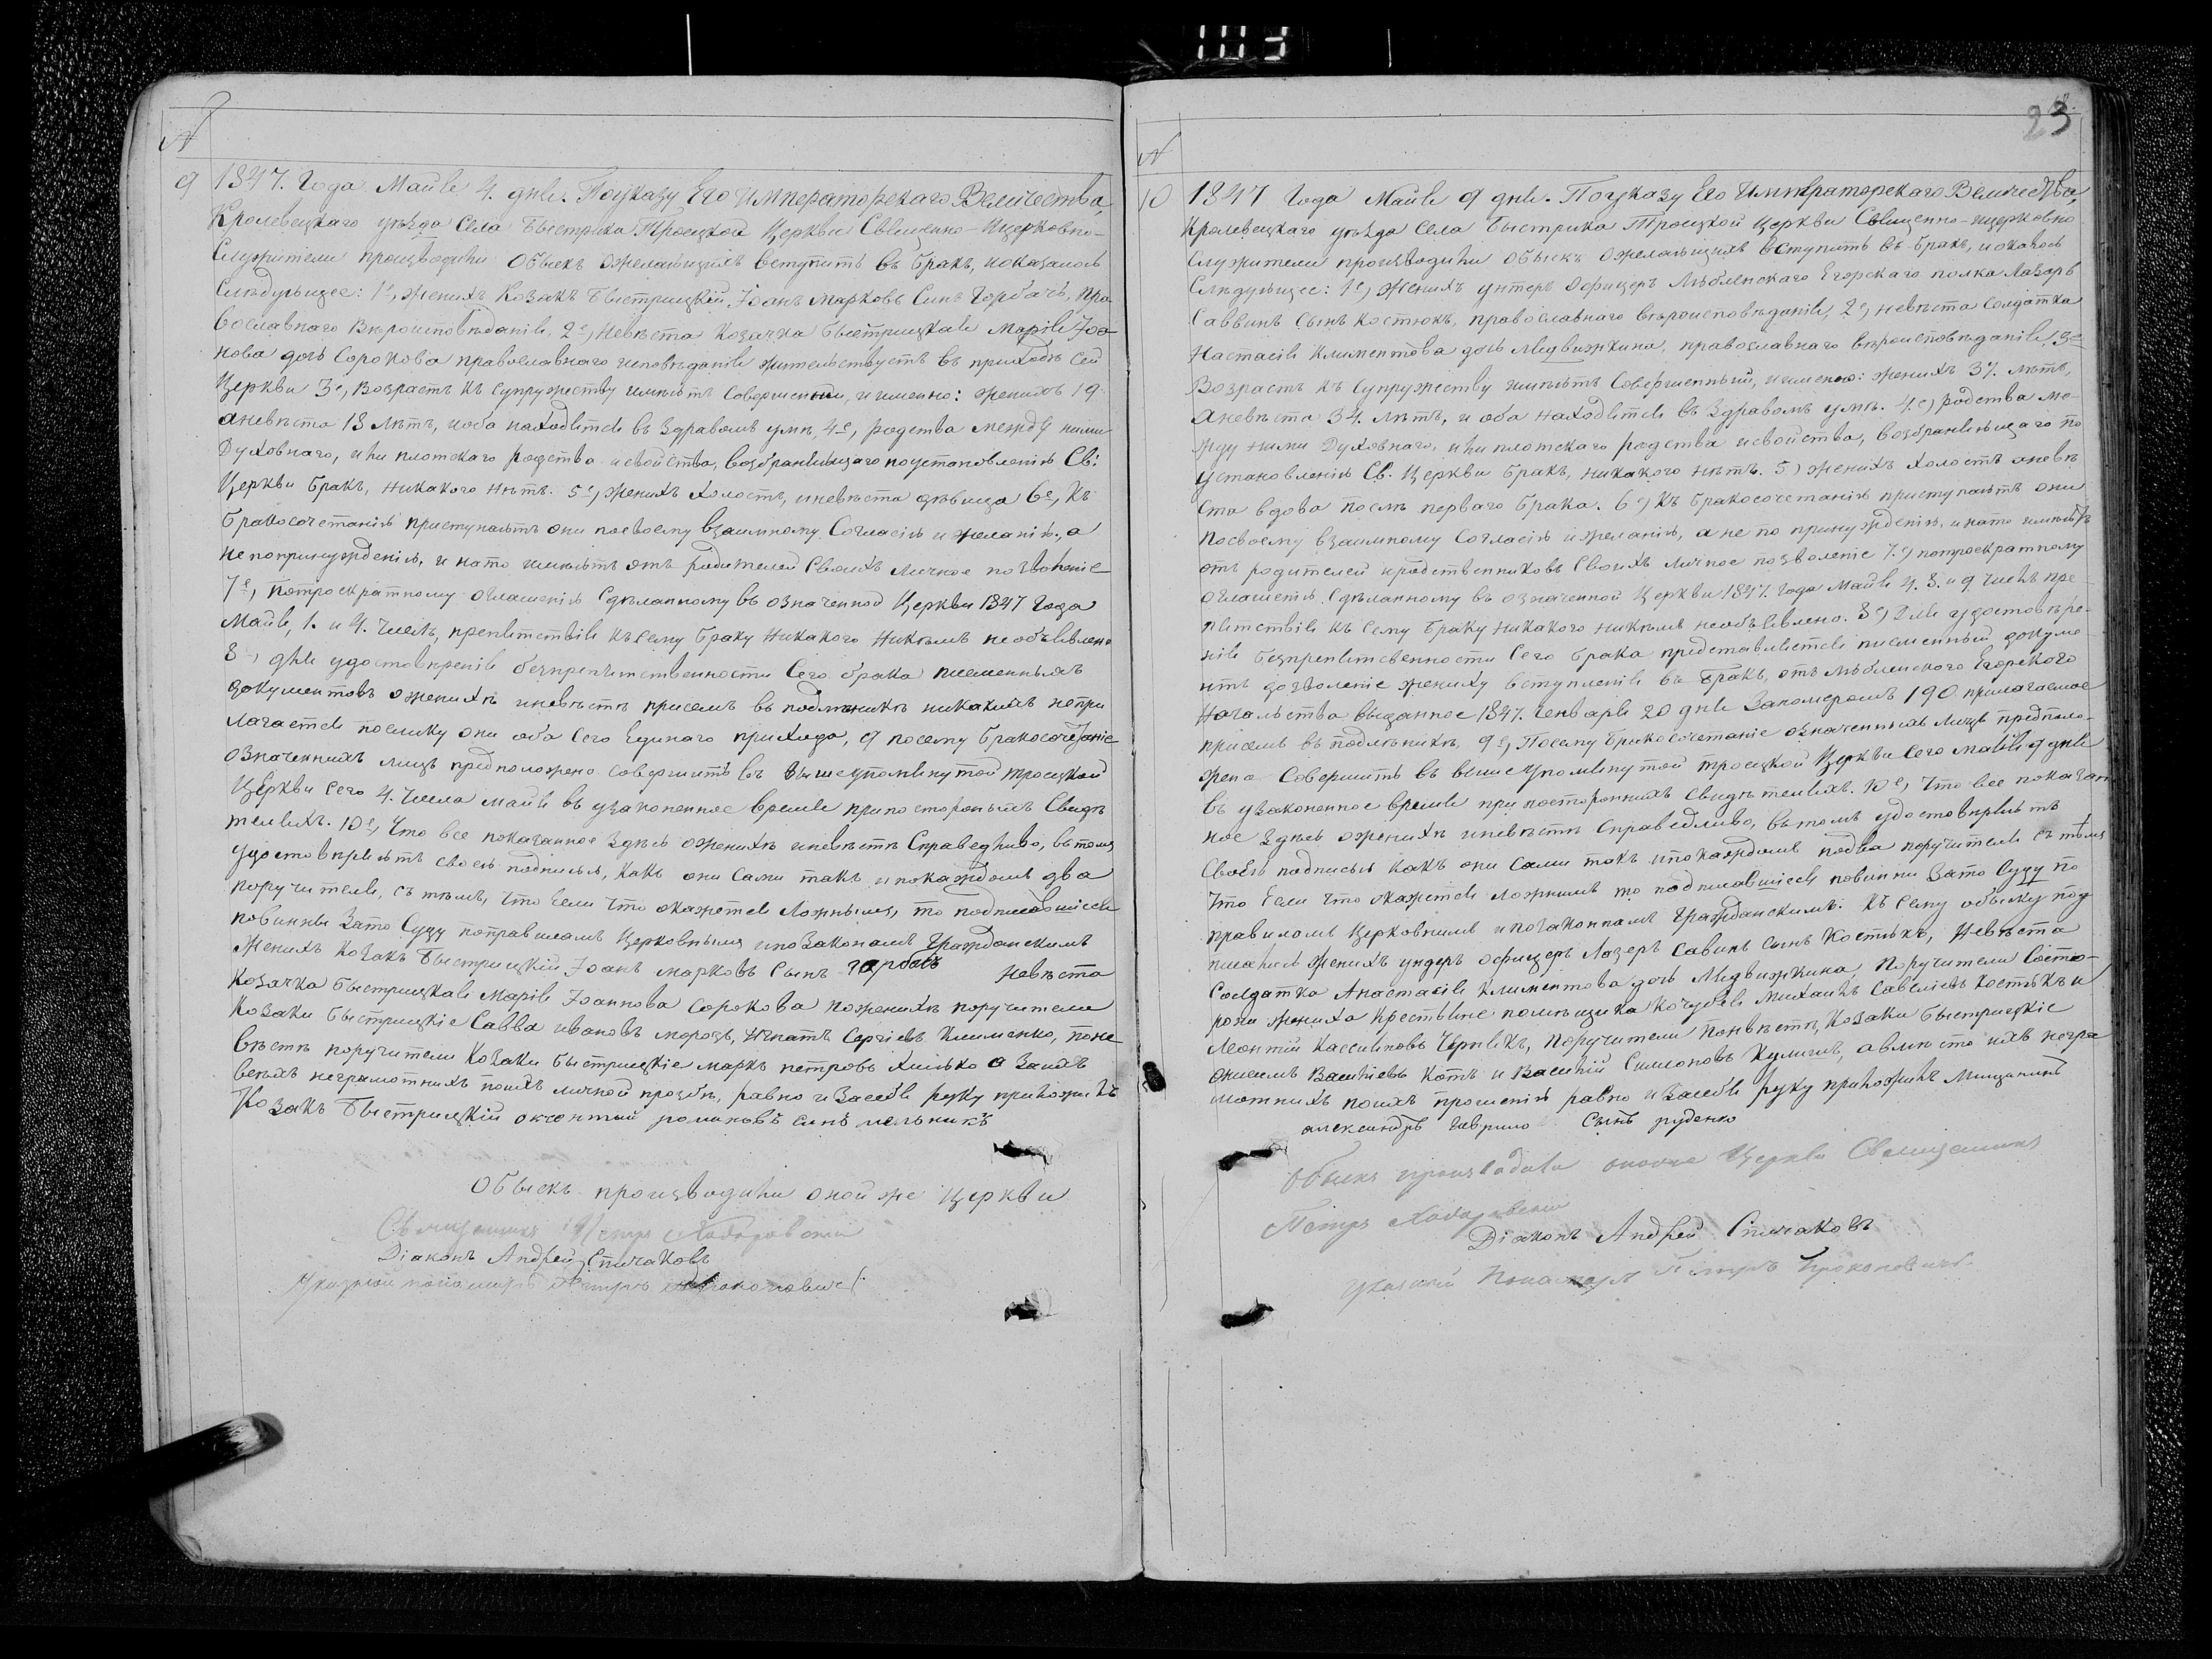 1113
N
9 1847. Года Маия 4. дня. По указу Его Императорскаго Величества,
Кролевецкаго уѣзда Села Быстрика Троецкой Церкви Священно-Ицерковно-
Служители производили обыскъ ожелающихъ вступить въ бракъ, и оказалось
Слѣдующее: 1е, женихъ Козакъ Быстрицкій, Іоанъ Марковъ Синъ Горбачъ, пра-
вославнаго вѣроисповѣданія, 2е, Невѣста Козачка Быстрицкая Марія Іоа-
нова дочь Сорокова православнаго исповѣданія жительствуетъ въ приходѣ сей
Церкви 3е, Возрастъ къ супружеству имѣютъ совершенный, и именно: женихъ 19.
аневѣста 18 лѣтъ, иоба находятся въ здравомъ умѣ, 4е, родства между ними
Духовнаго, и ни плотскаго родства и свойства, возбраняющаго поустановленію Св:
Церкви бракъ, никакого нѣтъ. 5е, женихъ холостъ, иневѣста дѣвица 6е, Къ
бракосочетанію приступаютъ они посвоему взаимному Согласію и желанію, а
непопринужденію, и нато имѣютъ отъ родителей Своихъ личное позволеніе
7е, потроекратному оглашенію сдѣланному въ означенной Церкви 1847 года
Маия, 1. и 4. чиселъ, препятствія къ сему браку никакого никѣмъ необъявлено
8е, для удостовѣренія безпрепятственности сего брака писменныхъ
документовъ оженихѣ иневѣстѣ присемъ въ подлѣникѣ никакихъ непри
лагается поелику они оба сего Единаго прихода, 9 посему бракосочетаніе
означенныхъ лицъ предположено совершить въ вышеупомянутой троецкой
Церкви сего 4. числа маия въ узаконенное время припостороныхъ Свидѣ
телияхъ. 10е, Что все показанное здѣсь оженихѣ иневѣстѣ Справедливо, въ томъ
удостовѣряютъ своею подписью, какъ они Сами такъ и покаждомъ два
поручителя, съ тѣмъ, что Если что окажется ложнымъ, то подписавшіеся
повинны зато Суду поправиламъ Церковнымъ и позаконамъ Гражданскимъ
Женихъ козакъ Быстрицкій Іоанъ марковъ Сынъ Горбачъ Невѣста
козачка Быстрицкая Марія Іоаннова Сорокова поженихѣ поручители
Козаки Быстрицкіе Савва ивановъ морозъ, Игнатъ Сергіевъ Клименко, поне
вѣстѣ поручители Козаки Быстрицкіе маркъ петровъ Хилько а за
всѣхъ неграмотныхъ поихъ личной прозбѣ, равно и засебя руку приложилъ
Козакъ Быстрицкій романовъ синъ мельникъ
Обыскъ производили оной же Церкви
Священникъ Петръ
Діаконъ Андрей Спичаковъ
Указной пономарь Петръ Прокоповичъ
23
N
10 1847 Года Маия 9 дня. По указу Его Императорскаго Величества,
Кролевецкаго уѣзда Села Быстрика Троецкой Церкви Священно-ицерковно
Служители производили Обыскъ ожелающихъ вступить въ бракъ, и окалось
Слѣдующее: 1е, женихъ унтеръ офицеръ Люблинскаго Егерскаго полка Лазарь
Саввинъ Сынъ Костюкъ, православнаго вѣроисповѣданія, 2е, невѣста Солдатка
Настасія Климентова дочь Медвижкина, православнаго вѣроисповѣданія, 3е
Возрастъ къ Супружеству имѣютъ Совершенный, и именно: женихъ 37. лѣтъ,
аневѣста 34. лѣтъ, и оба находятся въ здравомъ умѣ. 4е) родства ме-
жду ними Духовнаго, и ни плотскаго родства исвойства, возбраняющаго по
установленію Св. Церкви бракъ, никакого нѣтъ. 5) женихъ холостъ аневѣ
ста вдова послѣ перваго брака. 6е) Къ бракосочетанію приступаютъ они
посвоему взаимному Согласію и желанію, а не по принужденію, и нато имѣютъ
отъ родителей и родственниковъ Своихъ личное позволеніе 7е) потроекратному
оглашенію сдѣланному въ означенной Церкви 1847. года Маия 4. 8. и 9 чиселъ пре-
пятствія къ сему браку никакого никѣмъ необъявлено. 8е) Для удостовѣре-
нія безпрепятственности сего брака представляется писменный докуме
нтъ дозволеніе жениху вступленія въ бракъ, отъ люблинского Егерского
Начальства выданное 1847. Генваря 20 дня Заномеромъ 190. прилагаемое
присемъ въ подлѣникѣ, 9е, Посему бракосочетаніе означенныхъ лицъ предполо-
жено Совершить въ вышеупомянутой троецкой Церкви сего маия 9 дня
въ узаконенное время при постороннихъ свидѣтеляхъ. 10е, Что все показан
ное здѣсь оженихѣ иневѣстѣ справедливо, въ томъ удостовѣряютъ
Своею подписью какъ они сами такъ ипокаждомъ подва поручителя съ тѣмъ
что Если что окажется ложнымъ то подписавшіеся повинни зато Суду по
правиламъ Церковнымъ и позаконамъ Гражданскимъ. Къ сему обыску под
писались женихъ ундеръ офицеръ Лазеръ Савинъ сынъ Костюкъ, Невѣста
Солдатка Анастасія Климентова дочь Медвижкина, Поручители Состо-
роны жениха Крестьяне помѣщика Кочубея Михаилъ Савеліевъ Костюкъ и
Леонтій Кассияновъ Чернякъ, Поручители поневѣстѣ, Козаки Быстрицкіе
Онисимъ Васильевъ Котъ и Василій Симоновъ Кулишъ, авмѣсто ихъ негра
мотныхъ поихъ прошенію равно и засебя руку приложилъ Мищанинъ
александръ гаврило Сынъ руденко
Обыскъ производили оноиже Церкви Священникъ
Петръ
Діаконъ Андрей Спичаковъ
указній Пономарь Петръ Прокоповичъ